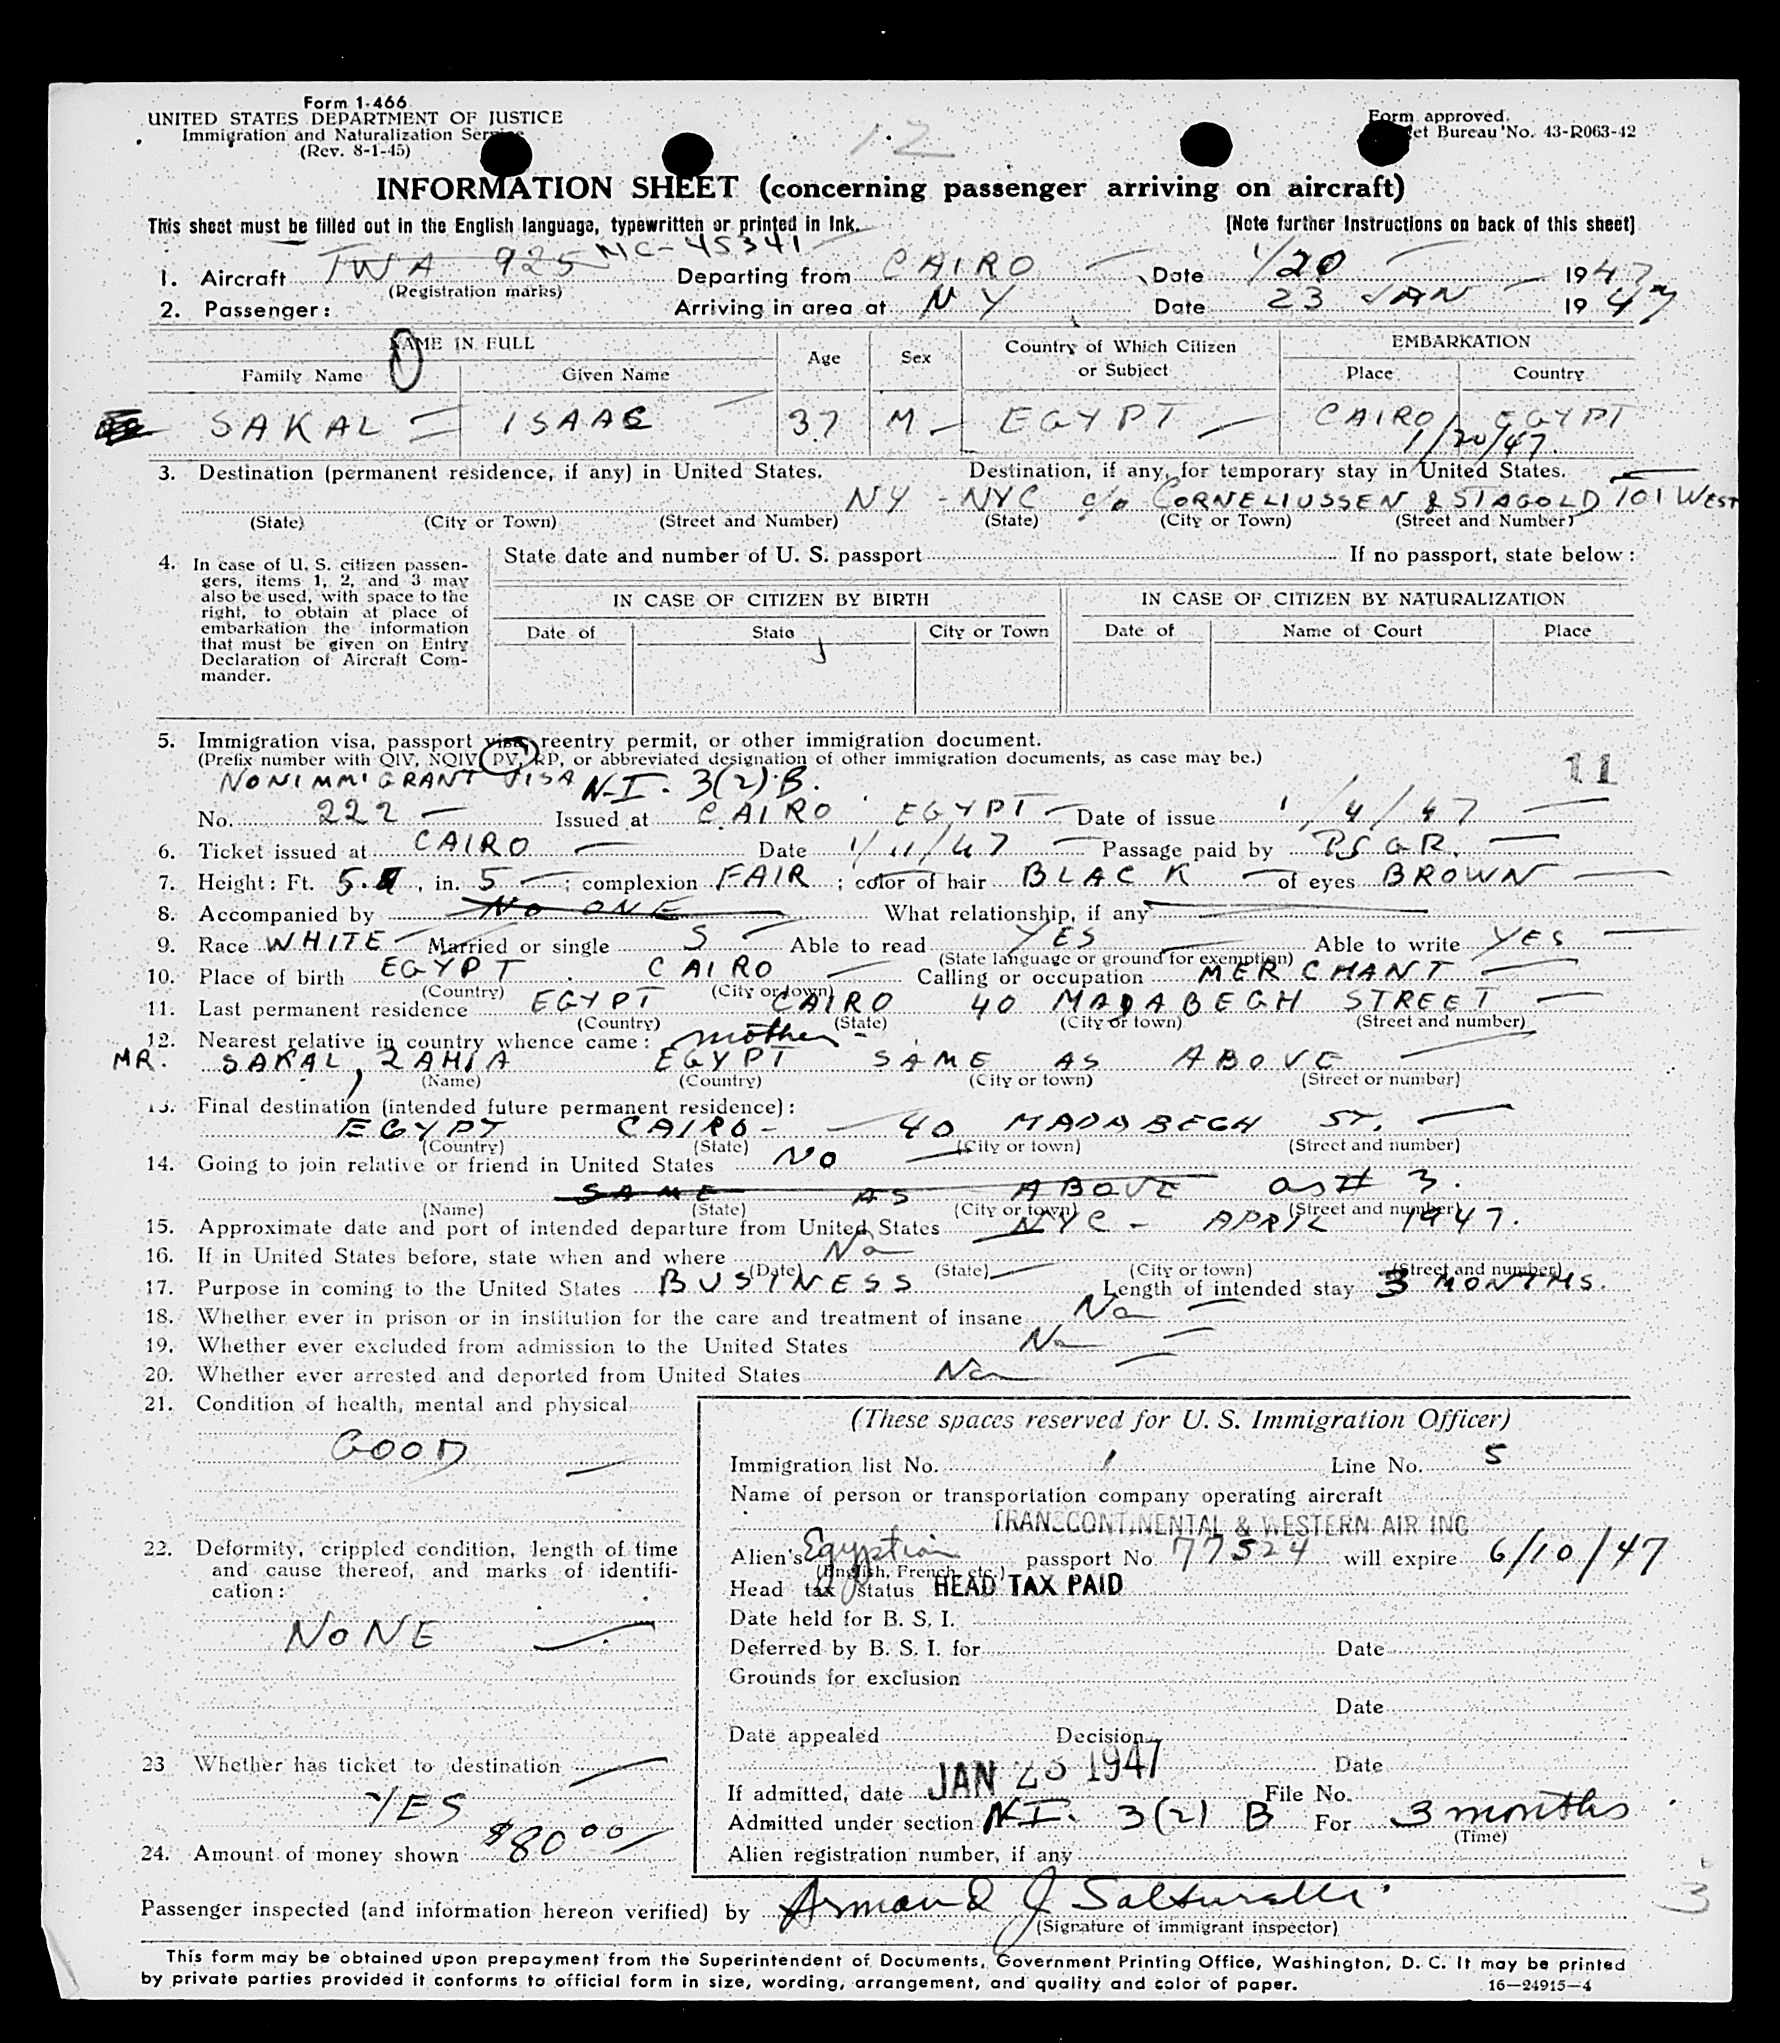 Form I-466
UNITED STATES DEPARTMENT OF JUSTICE
Immigration and Naturalization Service
(Rev. 8-1-45)
Form approved.
Bureau No. 43-R063-42
12
INFORMATION SHEET (concerning passenger arriving on aircraft)
This sheet must be filled out in the English language, typewritten or printed in Ink.
[Note further Instructions on back of this sheet]
1. Aircraft TWA 925 NC-45341 Departing from CAIRO Date 1/20 1947
(Registration marks)
2. Passenger: Arriving in area at NY Date 23 JAN 1947
NAME IN FULL Age Sex Country of Which Citizen or Subject EMBARKATION
Family Name Given Name Place Country
SAKAL ISAAC 37 M EGYPT CAIRO EGYPT
1/20/47.
3. Destination (permanent residence, if any) in United States. Destination, if any, for temporary stay in United States.
NY - NYC c/o CORNELIUSSEN & STAGOLD 101 WEST
(State) (City or Town) (Street and Number) (State) (City or Town) (Street and Number)
4. In case of U. S. citizen passen-
gers, items 1, 2, and 3 may
also be used, with space to the
right, to obtain at place of
embarkation the information
that must be given on Entry
Declaration of Aircraft Com-
mander.
State date and number of U. S. passport If no passport, state below:
IN CASE OF CITIZEN BY BIRTH IN CASE OF CITIZEN BY NATURALIZATION
Date of State City or Town Date of Name of Court Place
5. Immigration visa, passport visa, reentry permit, or other immigration document.
(Prefix number with QIV, NQIV, PV, RP, or abbreviated designation of other immigration documents, as case may be.)
11
NONIMMIGRANT VISA N-I. 3(2).B.
No. 222 Issued at CAIRO EGYPT Date of issue 1/4/47
6. Ticket issued at CAIRO Date 1/11/47 Passage paid by PSGR.
7. Height: Ft. 5. , in. 5 ; complexion FAIR ; color of hair BLACK of eyes BROWN
8. Accompanied by NO ONE What relationship, if any
9. Race WHITE Married or single S Able to read YES Able to write YES
(State language or ground for exemption)
10. Place of birth EGYPT CAIRO Calling or occupation MERCHANT
(Country) (City or town)
11. Last permanent residence EGYPT CAIRO 40 MADABEGH STREET
(Country) (State) (City or town) (Street and number)
12. Nearest relative in country whence came: mother
MR. SAKAL, ZAHIA EGYPT SAME AS ABOVE
(Name) (Country) (City or town) (Street or number)
13. Final destination (intended future permanent residence):
EGYPT CAIRO - 40 MADABEGH ST.
(Country) (State) (City or town) (Street and number)
14. Going to join relative or friend in United States NO
SAME AS ABOVE as # 3.
(Name) (State) (City or town) (Street and number)
15. Approximate date and port of intended departure from United States NYC - APRIL 1947.
16. If in United States before, state when and where No
(Date) (State) (City or town) (Street and number)
17. Purpose in coming to the United States BUSINESS Length of intended stay 3 MONTHS.
18. Whether ever in prison or in institution for the care and treatment of insane No
19. Whether ever excluded from admission to the United States No
20. Whether ever arrested and deported from United States No
21. Condition of health, mental and physical
GOOD
22. Deformity, crippled condition, length of time
and cause thereof, and marks of identifi-
cation:
NONE
23 Whether has ticket to destination
YES
24. Amount of money shown $80 00
(These spaces reserved for U. S. Immigration Officer)
Immigration list No. 1 Line No. 5
Name of person or transportation company operating aircraft
TRANSCONTINENTAL & WESTERN AIR INC
Alien's Egyptian passport No. 77524 will expire 6/10/47
(English, French, etc.)
Head tax status HEAD TAX PAID
Date held for B. S. I.
Deferred by B. S. I. for Date
Grounds for exclusion
Date
Date appealed Decision
Date
If admitted, date JAN 23 1947 File No.
Admitted under section N.I. 3(2) B For 3 months
(Time)
Alien registration number, if any
3
Passenger inspected (and information hereon verified) by Armand J
(Signature of immigrant inspector)
This form may be obtained upon prepayment from the Superintendent of Documents, Government Printing Office, Washington, D. C. It may be printed
by private parties provided it conforms to official form in size, wording, arrangement, and quality and color of paper.
16—24915-4